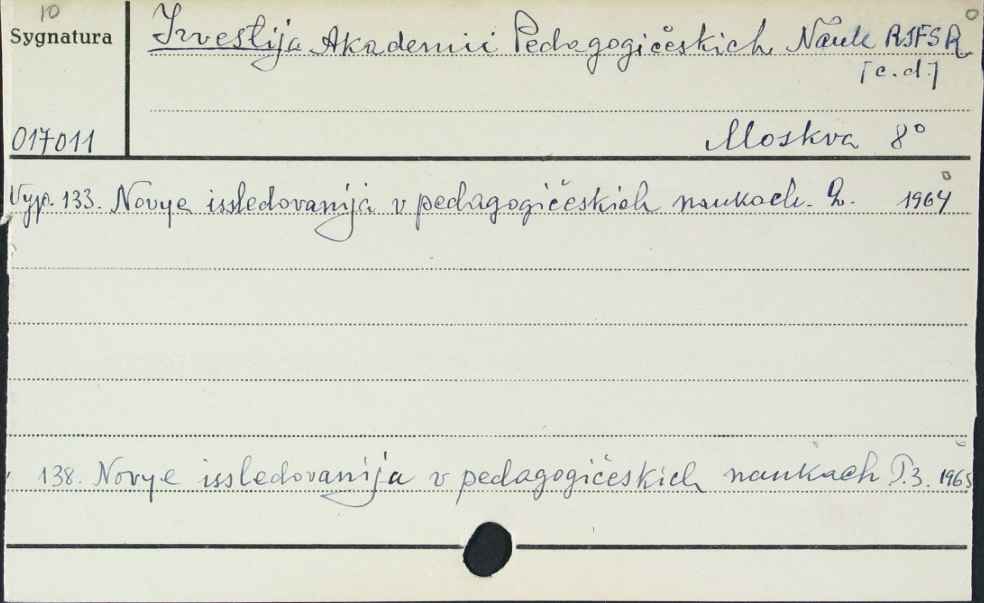 10
Sygnatura Izvestija Akademii Pedagogičeskich Nauk RSFSR
[c.d.]
017011 Moskva 8°
Vyp. 133. Novye issledovanija v pedagogičeskich naukach. 2. 1964
138. Novye issledovanija v pedagogičeskich naukach T.3. 1965